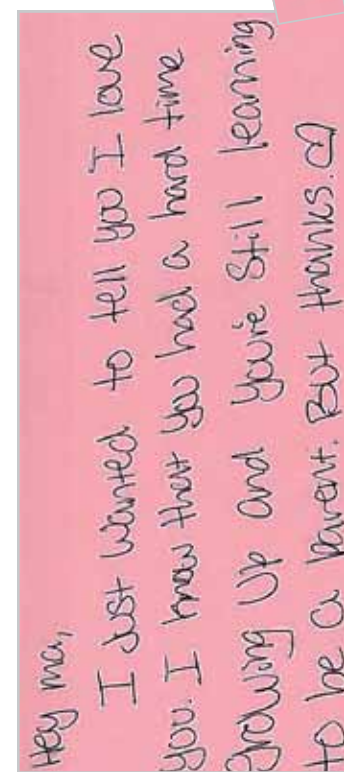 Hey ma,
I Just wanted to tell you I love
you. I know that you had a hard time
growing up and you're still learning
to be a parent. But thanks. ♡